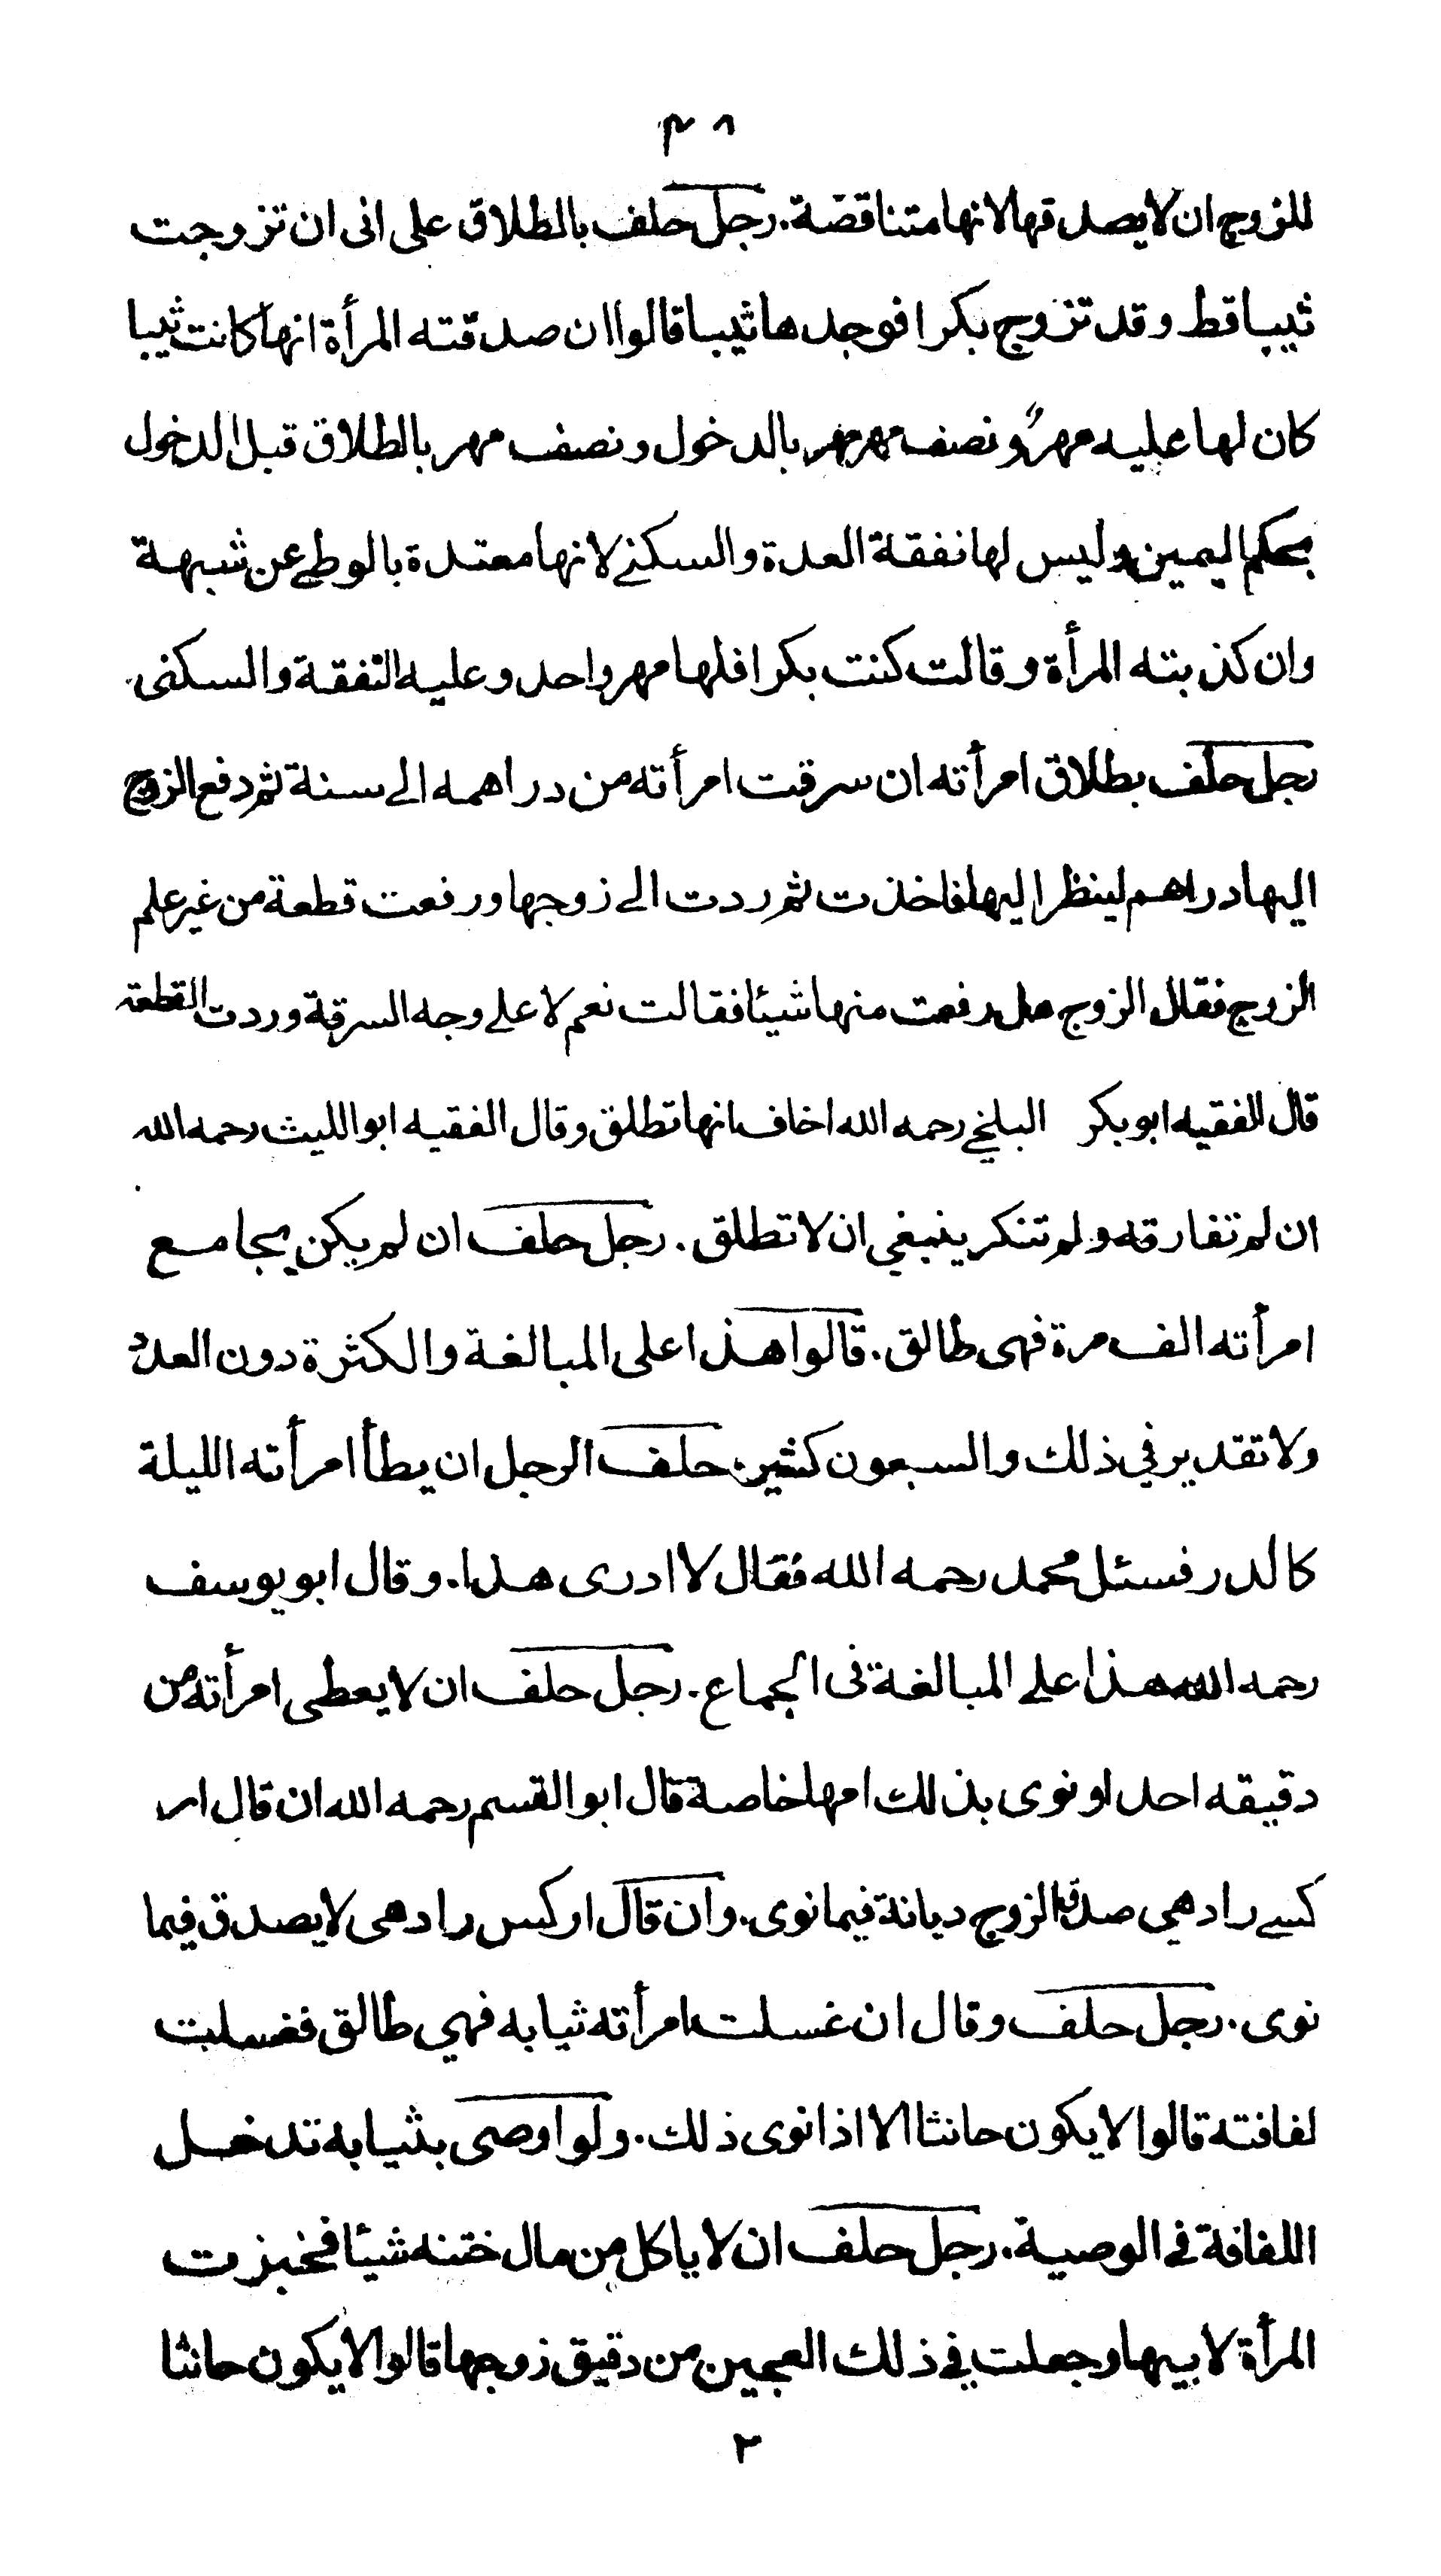 ٣٨
للزوج ان لا يصدقها لانها متناقضة. رجل حلف بالطلاق على انى ان تزوجت
ثيبا قط وقد تزوج بكرا فوجدها ثيبا قالوا ان صدقته المرأة انها كانت ثيبا
كان لها عليه مهرٌ ونصف مهر مهر بالدخول ونصف مهر بالطلاق قبل الدخول
بحكم اليمين وليس لها نفقة العدة والسكنے لانها معتدة بالوطے عن شبهة
وان كذبته المرأة وقالت كنت بكرا فلها مهر واحد وعليه النفقة والسكنى.
رجل حلف بطلاق امرأته ان سرقت امرأته من دراهمه الے سنة ثم دفع الزوج
اليها دراهم لينظر اليها فاخذت ثم ردت الے زوجها ورفعت قطعة من غير علم
الزوج فقال الزوج هل رفعت منها شيئا فقالت نعم لا علے وجه السرقة وردت القطعة
قال الفقيه ابو بكر البلخے رحمه الله اخاف انها تطلق وقال الفقيه ابو الليث رحمه الله
ان لم تفارقه ولم تنكر ينبغي ان لا تطلق. رجل حلف ان لم يكن يجامع
امرأته الف مرة فهى طالق. قالوا هذا على المبالغة والكثرة دون العدد
ولا تقدير في ذلك والسبعون كثير. حلف الرجل ان يطأ امرأته الليلة
كالدر فسئل محمد رحمه الله فقال لا ادرى هذا. وقال ابو يوسف
رحمه الله هذا علے المبالغة فى الجماع. رجل حلف ان لا يعطى امرأته من
دقيقه احدا ونوى بذلك امها خاصة قال ابو القسم رحمه الله ان قال ار
كسے را دهي صدق الزوج ديانة فيما نوى. وان قال ار كس را دهى لا يصدق فيما
نوى. رجل حلف وقال ان غسلت امرأته ثيابه فهي طالق فغسلت
لفافته قالوا لا يكون حانثا الا اذا نوى ذلك. ولو اوصى بثيابه تدخل
اللفافة فے الوصية. رجل حلف ان لا ياكل من مال ختنه شيئا فخبزت
المرأة لابيها وجعلت في ذلك العجين من دقيق زوجها قالوا لا يكون حانثا
٢